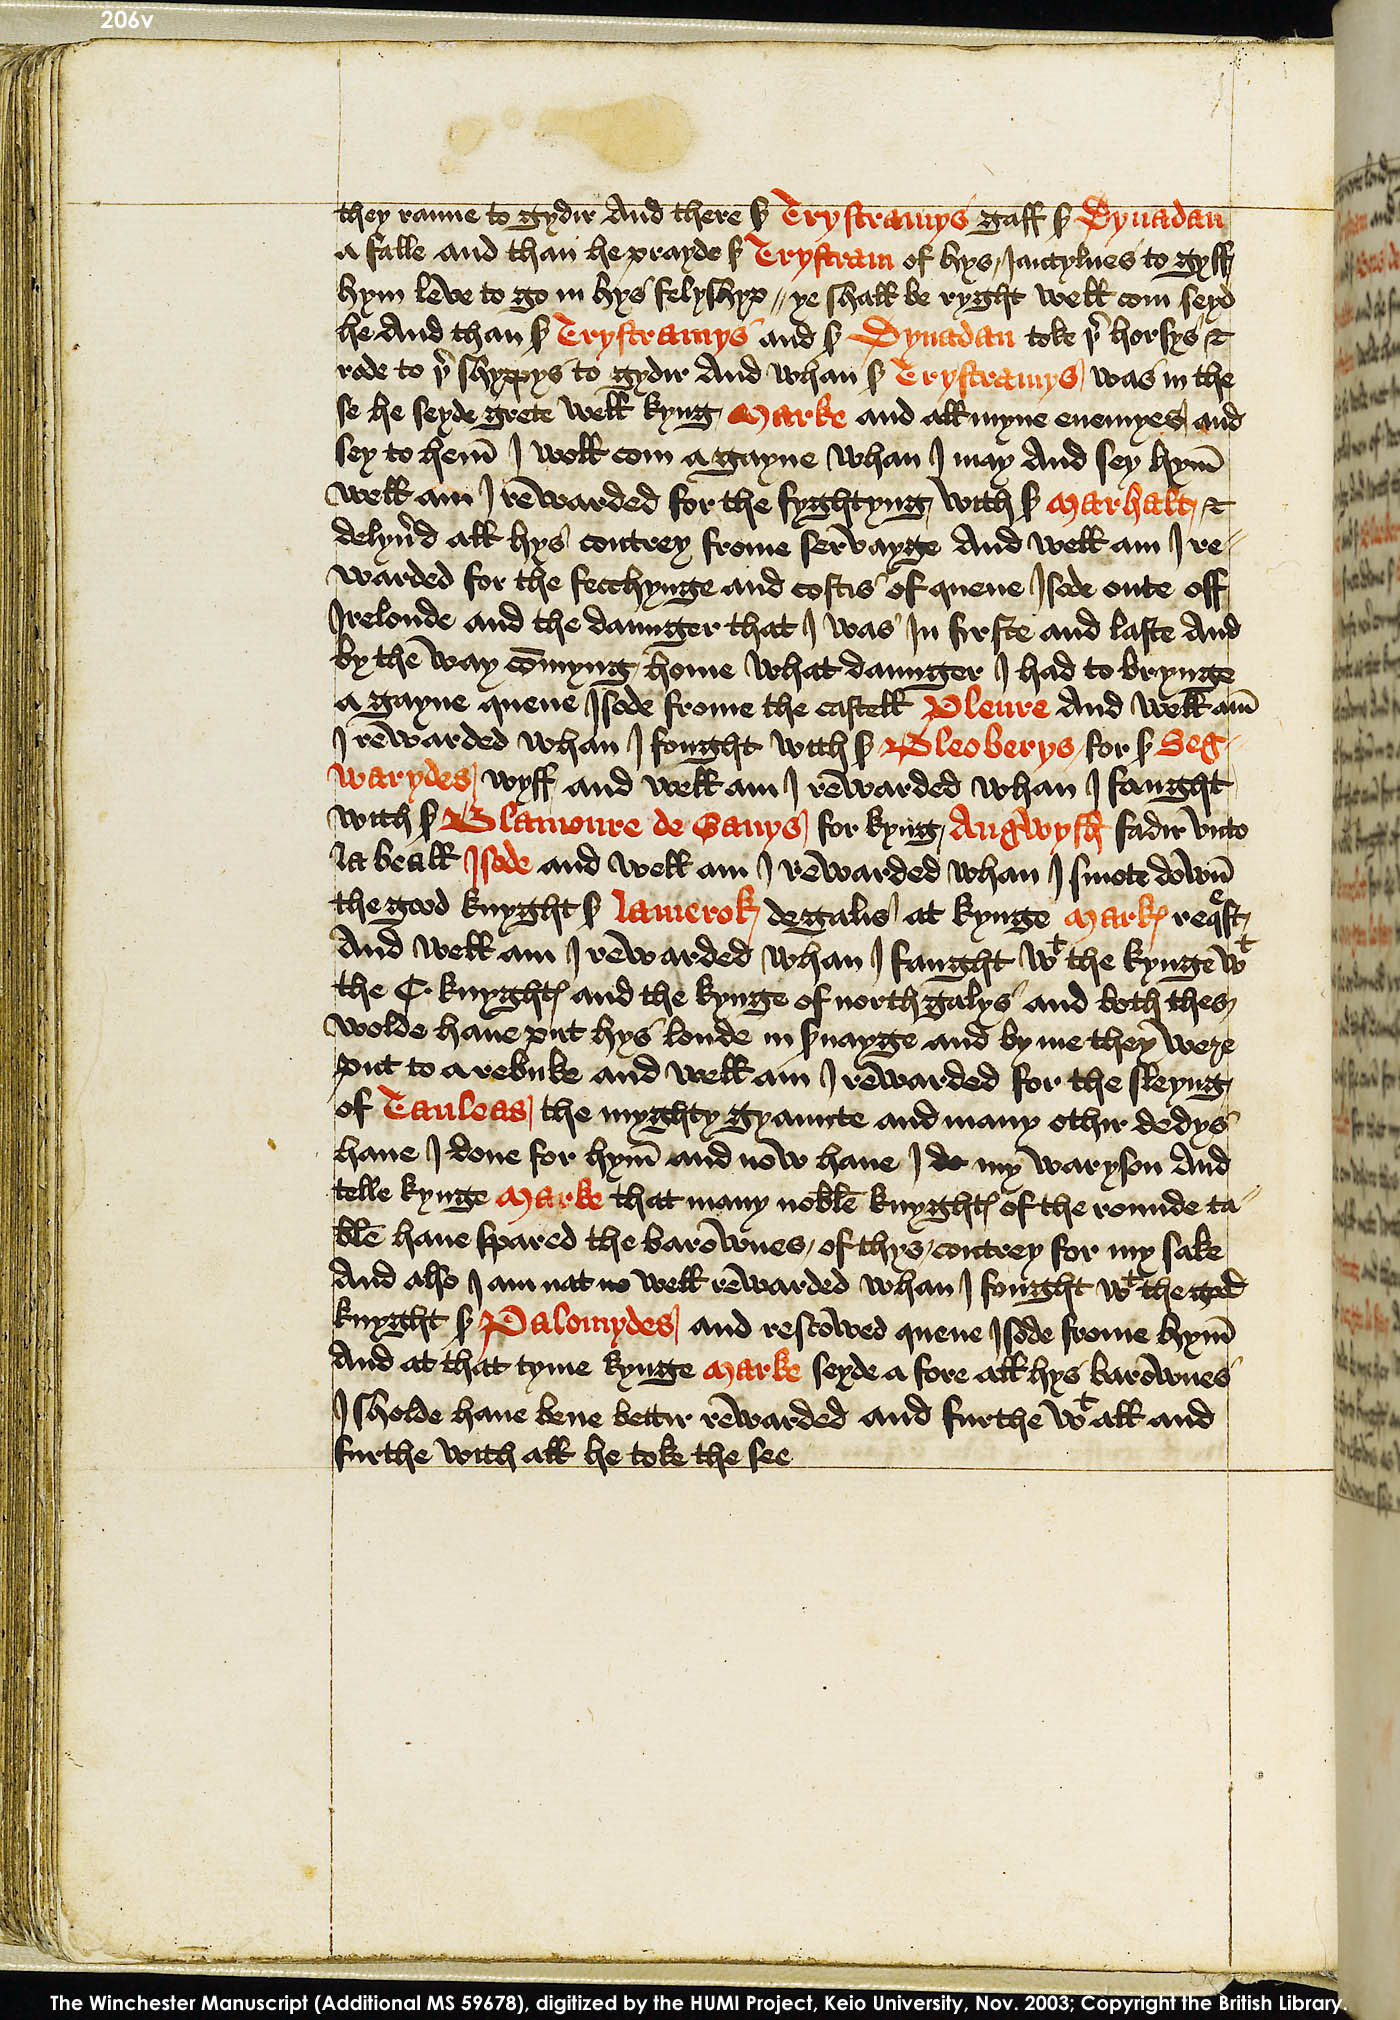 206v
they ranne to gydir And there s̛ Trystramys gaff s̛ Dynadan
a falle and than he prayde s̛ Trystram of hys / Jantylnes to gyff
hym leve to go in hys felyshyp // ye shall be ryght well com seyd
he And than s̛ Trystramys and s̛ Dynadan toke þr̛ horsys &
rode to þr̛ shyppys to gydir And whan s̛ Trystramys was in the
se he seyde grete well kyng Marke and all myne enemyes and
sey to hem̄ I woll com a gayne whan I may And sey hym̄
well am I rewarded for the fyghtyng with s̛ Marhalt / &
delyu̓d all hys contrey frome servayge And well am I re//
warded for the fecchynge and costis of quene Isode oute off
Irelonde and the daunger that I was In firste and laste And
by the way cōmyng home what daunger I had to brynge
a gayne quene Isode frome the castell Pleure And well am̄
I rewarded whan I fought with s̛ Bleoberys for s̛ Seg//
warydes wyff and well am I rewarded whan I faught
with s̛ Blamoure de Ganys for kyng Angwysh fadir vnto
la beall Isode and well am I rewarded whan I smote down̄
the good knyght s̛ lamerok de galis at kynge Markꝭ reqͤst
And well am I rewarded whan I faught wͭ the kynge wͭ
the C. knyghtꝭ and the kynge of north galys and both thes
wolde haue put hys londe in s̛uayge and by me they were
put to a rebuke and well am I rewarded for the sleyng
of Tauleas the myghty gyaunte and many othir dedys
haue I done for hym̄ and now haue I my waryson And
telle kynge Marke that many noble knyghtꝭ of the rounde ta//
ble haue spared the barownes of thys contrey for my sake
And also I am nat well rewarded whan I fought wͭ the good
knyght s̛ Palomydes and rescowed quene Isode frome hym̄
And at that tyme kynge Marke seyde a fore all hys barownes
I sholde haue bene bettir rewarded and furthe wͭ all and
furthe with all he toke the see
The Winchester Manuscript (Additional MS 59678), digitized by the HUMI Project, Keio University, Nov. 2003; Copyright the British Library.